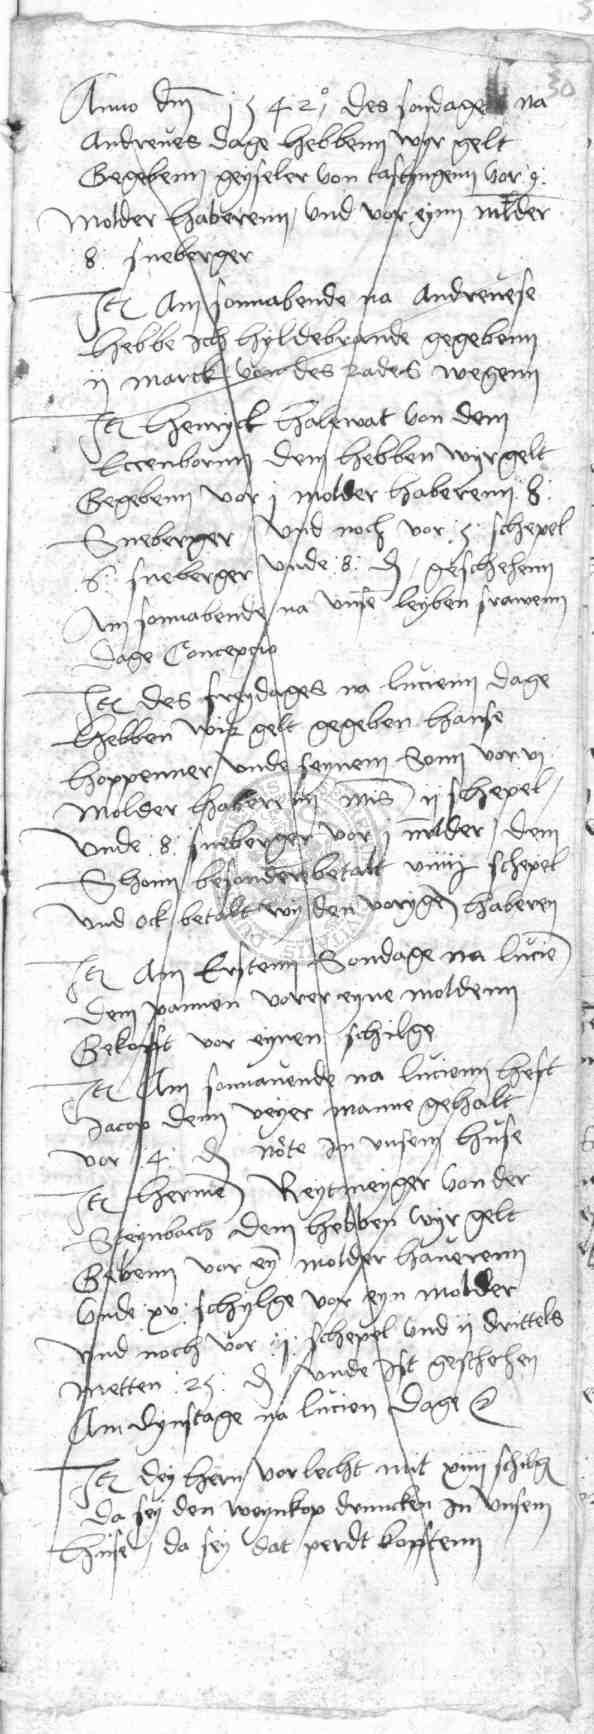 30
Anno dm 1542° des sondages na
Andrewes dage hebbenn wyr gelt
Gegebenn geyseler von tastungenn vor 9:
Molder haberenn, und vor eynn molder
:8: sneberger
It Am sonnabende na Andrewese
hebbe ich hyldebrande gegebenn
ij marck von des rades wegenn
It henryck halewat von dem
Eccenbornn dem hebben wyr gelt
Gegebenn vor j molder haberenn :8:
Sneberger, Und noch vor :5: schepel
:6: sneberger unde :8: d, geschehenn
Am sonnabende na unse leyben frawenn
dage Concepcio
It des freydages na lucienn dage
Hebben wir gelt gegeben hanse
hoppenner unde seynem Sonn vor vi
Molder haberenn mis ij schepel,
Unde :8: sneberger vor j molder, dem
Shonn besonderen betalt viiij schepel
Und ock betalt wy den vorygen haberen
It Am Erstenn Sondage na lucie
dem pannen vorer eyne moldenn
Gekofft vor eynen schilge
It Am sonnavende na lucienn heft
iacop denn veyer manne gehalt
vor :4: d note in unsem huse
It hermen Reytmeyger von der
Steynbach dem hebben wyr gelt
Gebenn vor ey molder haverenn
Unde xv schylge vor eyn molder
Und noch vor :ij: schepel und ij drittels
metten :25: d, unde ist geschehen
Am dynstage na lucien dage
It dey hern vorlecht mit xiiij schilg
da sey den weynkop druncken in unsem
huse, da sey dat perdt kofftenn